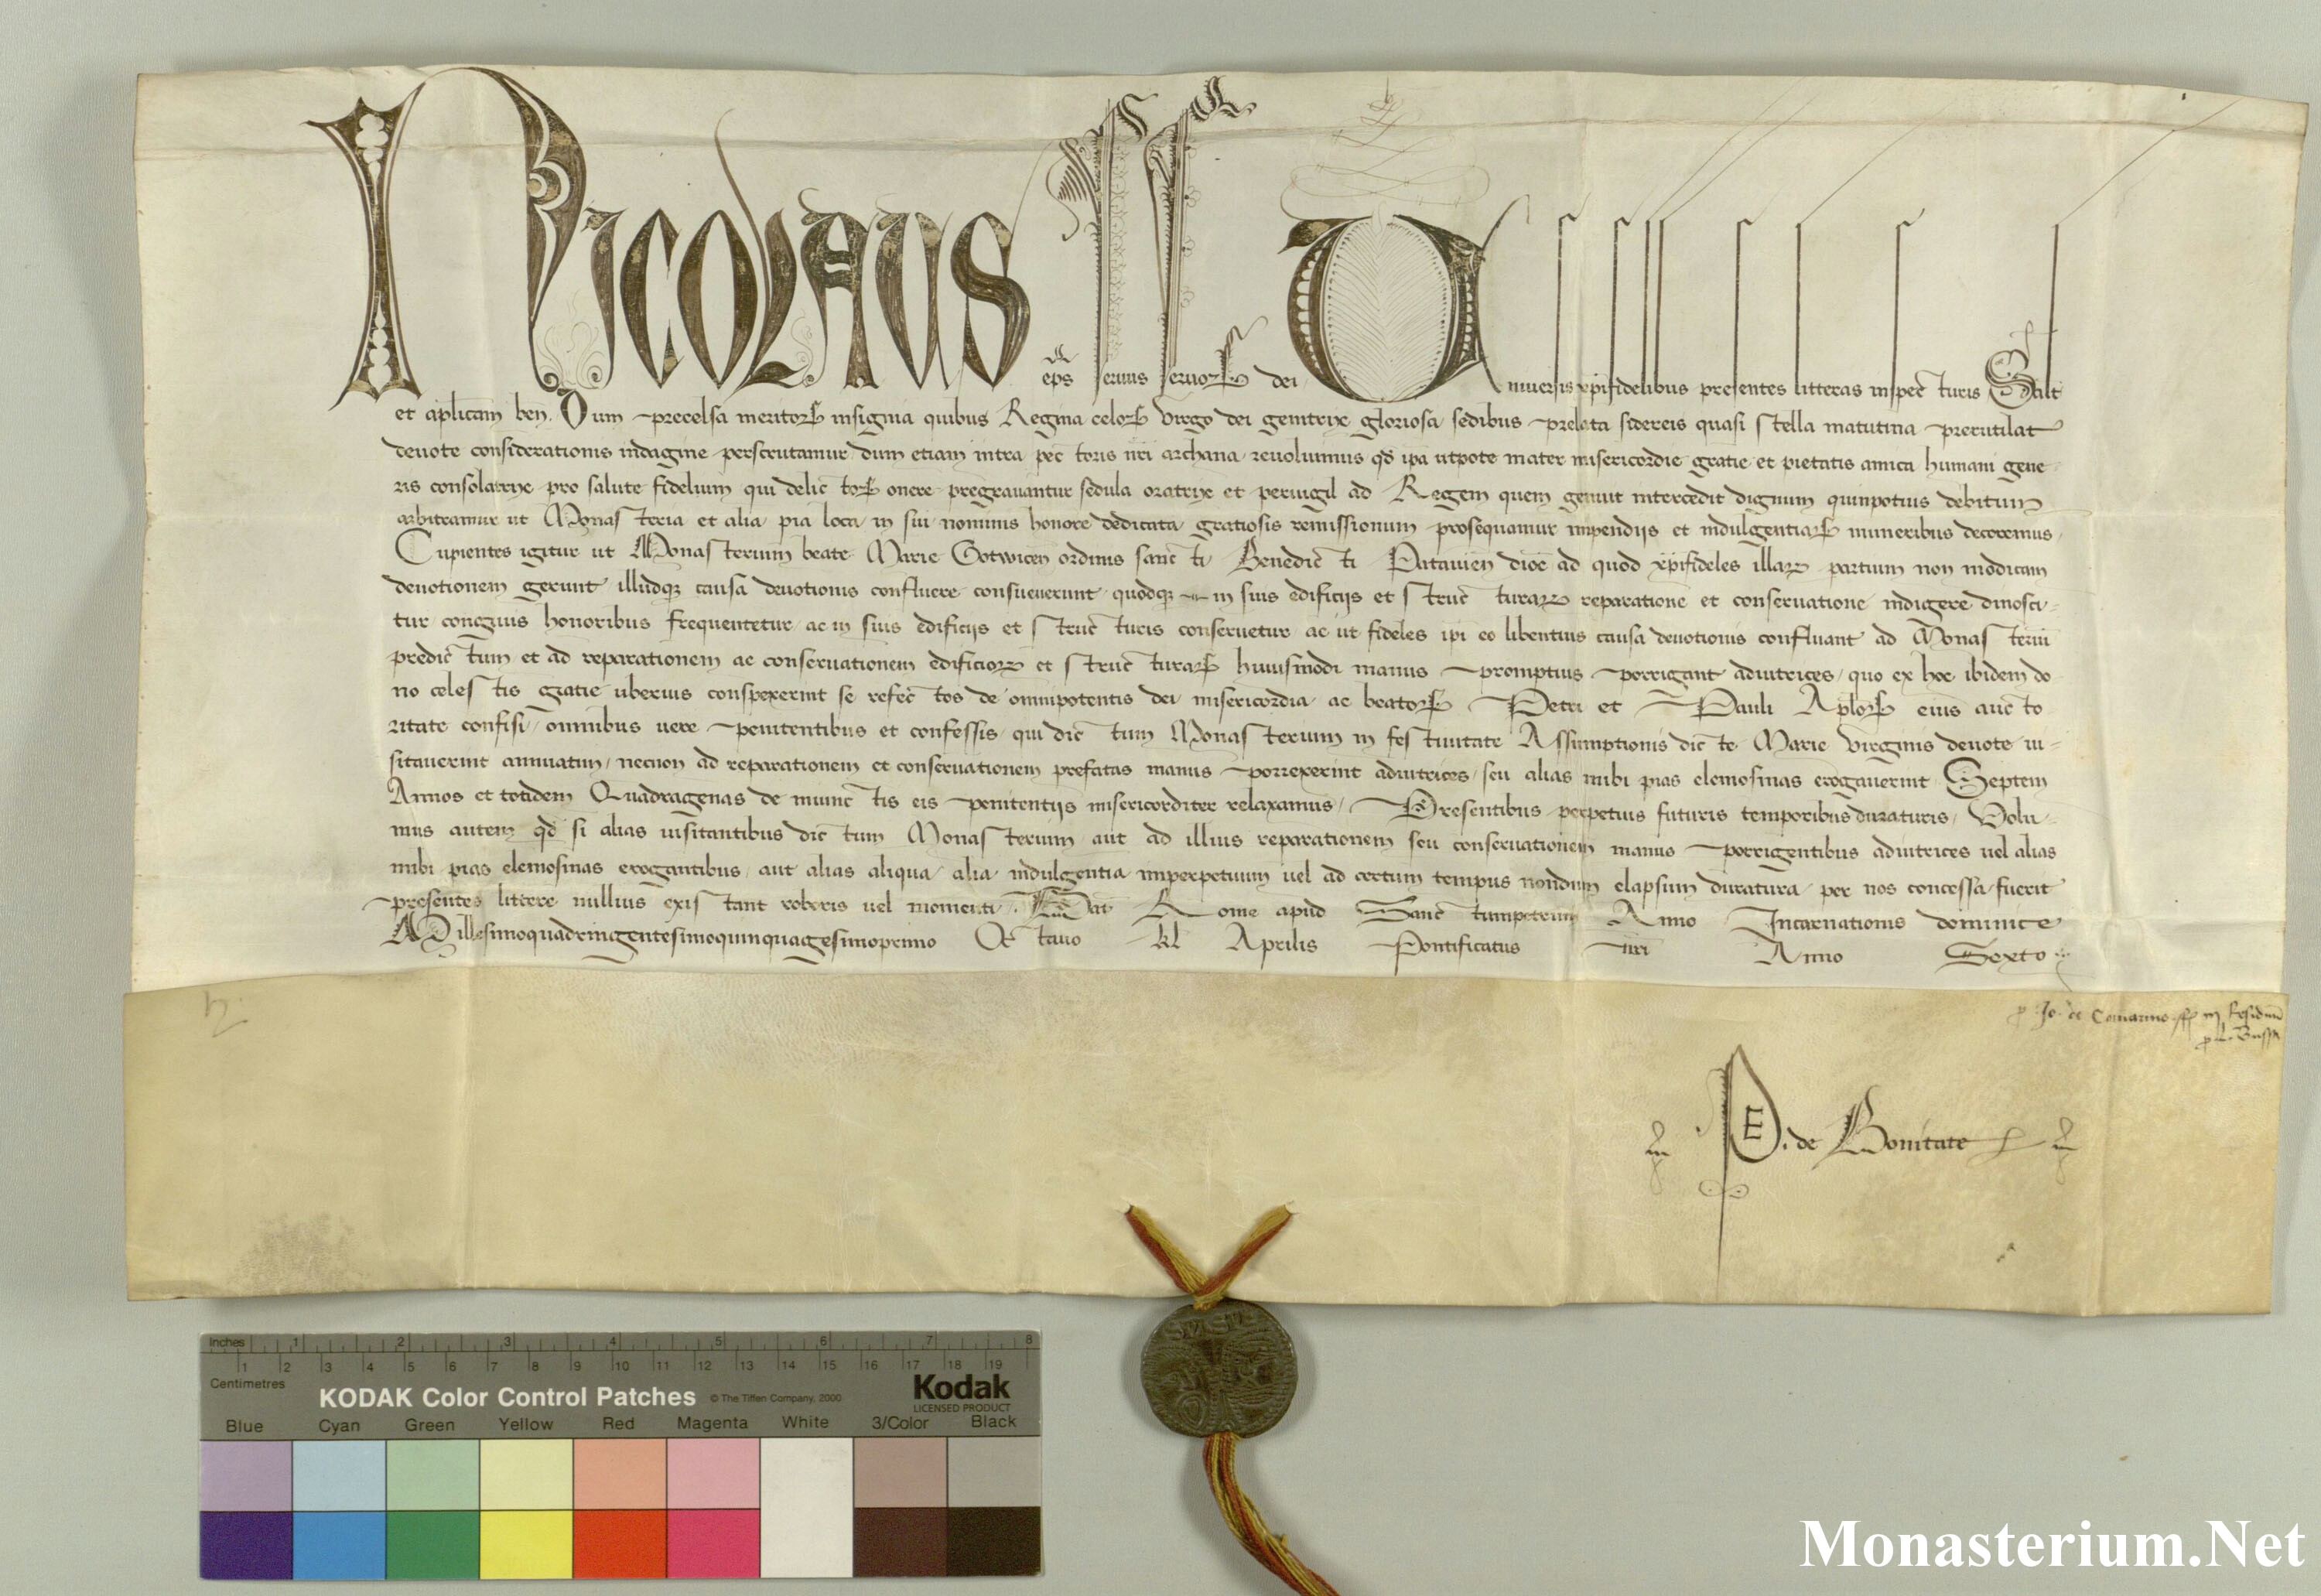 Nicolaus ep̄s seruus seruoꝝ dei Uniuersis xp̄ifidelibus presentes litteras inspecturis Salt̄
et apl̄icam ben̄. Dum precelsa meritoꝝ insignia quibus Regina celoꝝ virgo dei genitrix gloriosa sedibus prelata sidereis quasi stella matutina prerutilat
deuote considerationis indagine perscrutamur dum etiam intra pectoris nr̄i archana reuoluimus qd̄ ip̄a utpote mater misericordie gratie et pietatis amica humani gene
ris consolatrix pro salute fidelium qui delictoꝝ onere pregrauantur sedula oratrix et peruigil ad Regem quem genuit intercedit dignum quinpotius debitum
arbitramur ut Monasteria et alia pia loca in sui nominis honore dedicata gratiosis remissionum prosequamur impendijs et indulgentiaꝝ muneribus decoremus
Cupientes igitur ut Monasterium beate Marie Gotwicen̄ ordinis sancti Benedicti Patauien̄ dioc̄ ad quod xp̄ifideles illaꝝ partium non modicam
deuotionem gerunt illudqꝫ causa deuotionis confluere consueuerunt quodqꝫ in suis edificijs et structuraꝝ reparatione et conseruatione indigere dinosci-
tur congruis honoribus frequentetur ac in suis edificijs et structuris conseruetur ac ut fideles ip̄i eo libentius causa deuotionis confluant ad Monasteriū
predictum et ad reparationem ac conseruationem edificioꝝ et structuraꝝ huiusmodi manus promptius porrigant adiutrices quo ex hoc ibidem do
no celestis gratie uberius conspexerint se refectos de omnipotentis dei misericordia ac beatoꝝ Petri et Pauli Ap̄loꝝ eius aucto
ritate confisi omnibus uere penitentibus et confessis qui dictum Monasterium in festiuitate Assumptionis dicte Marie virginis deuote ui-
sitauerint annuatim necnon ad reparationem et conseruationem prefatas manus porrexerint adiutrices seu alias inibi pias elemosinas erogauerint Septem
Annos et totidem Quadragenas de iniunctis eis penitentijs misericorditer relaxamus Presentibus perpetuis futuris temporibus duraturis Volu-
mus autem qd̄ si alias uisitantibus dictum Monasterium aut ad illius reparationem seu conseruationem manus porrigentibus adiutrices uel alias
inibi pias elemosinas erogantibus aut alias aliqua alia indulgentia imperpetuum uel ad certum tempus nondum elapsum duratura per nos concessa fuerit
presentes littere nullius existant roboris uel momenti. Dat̄ Rome apud Sanctumpetrum Anno Incarnationis dominice
Millesimoquadringentesimoquinquagesimoprimo Octauo kl̄ Aprilis Pontificatus nr̄i Anno Sexto
Jo. de
PE. de Bonitate
KODAK Color Control Patches
© The Tiffen Company, 2000
Kodak
LICENSED PRODUCT
Inches 1 2 3 4 5 6 7 8
Centimetres 1 2 3 4 5 6 7 8 9 10 11 12 13 14 15 16 17 18 19
Blue Cyan Green Yellow Red Magenta White 3/Color Black
Monasterium.Net